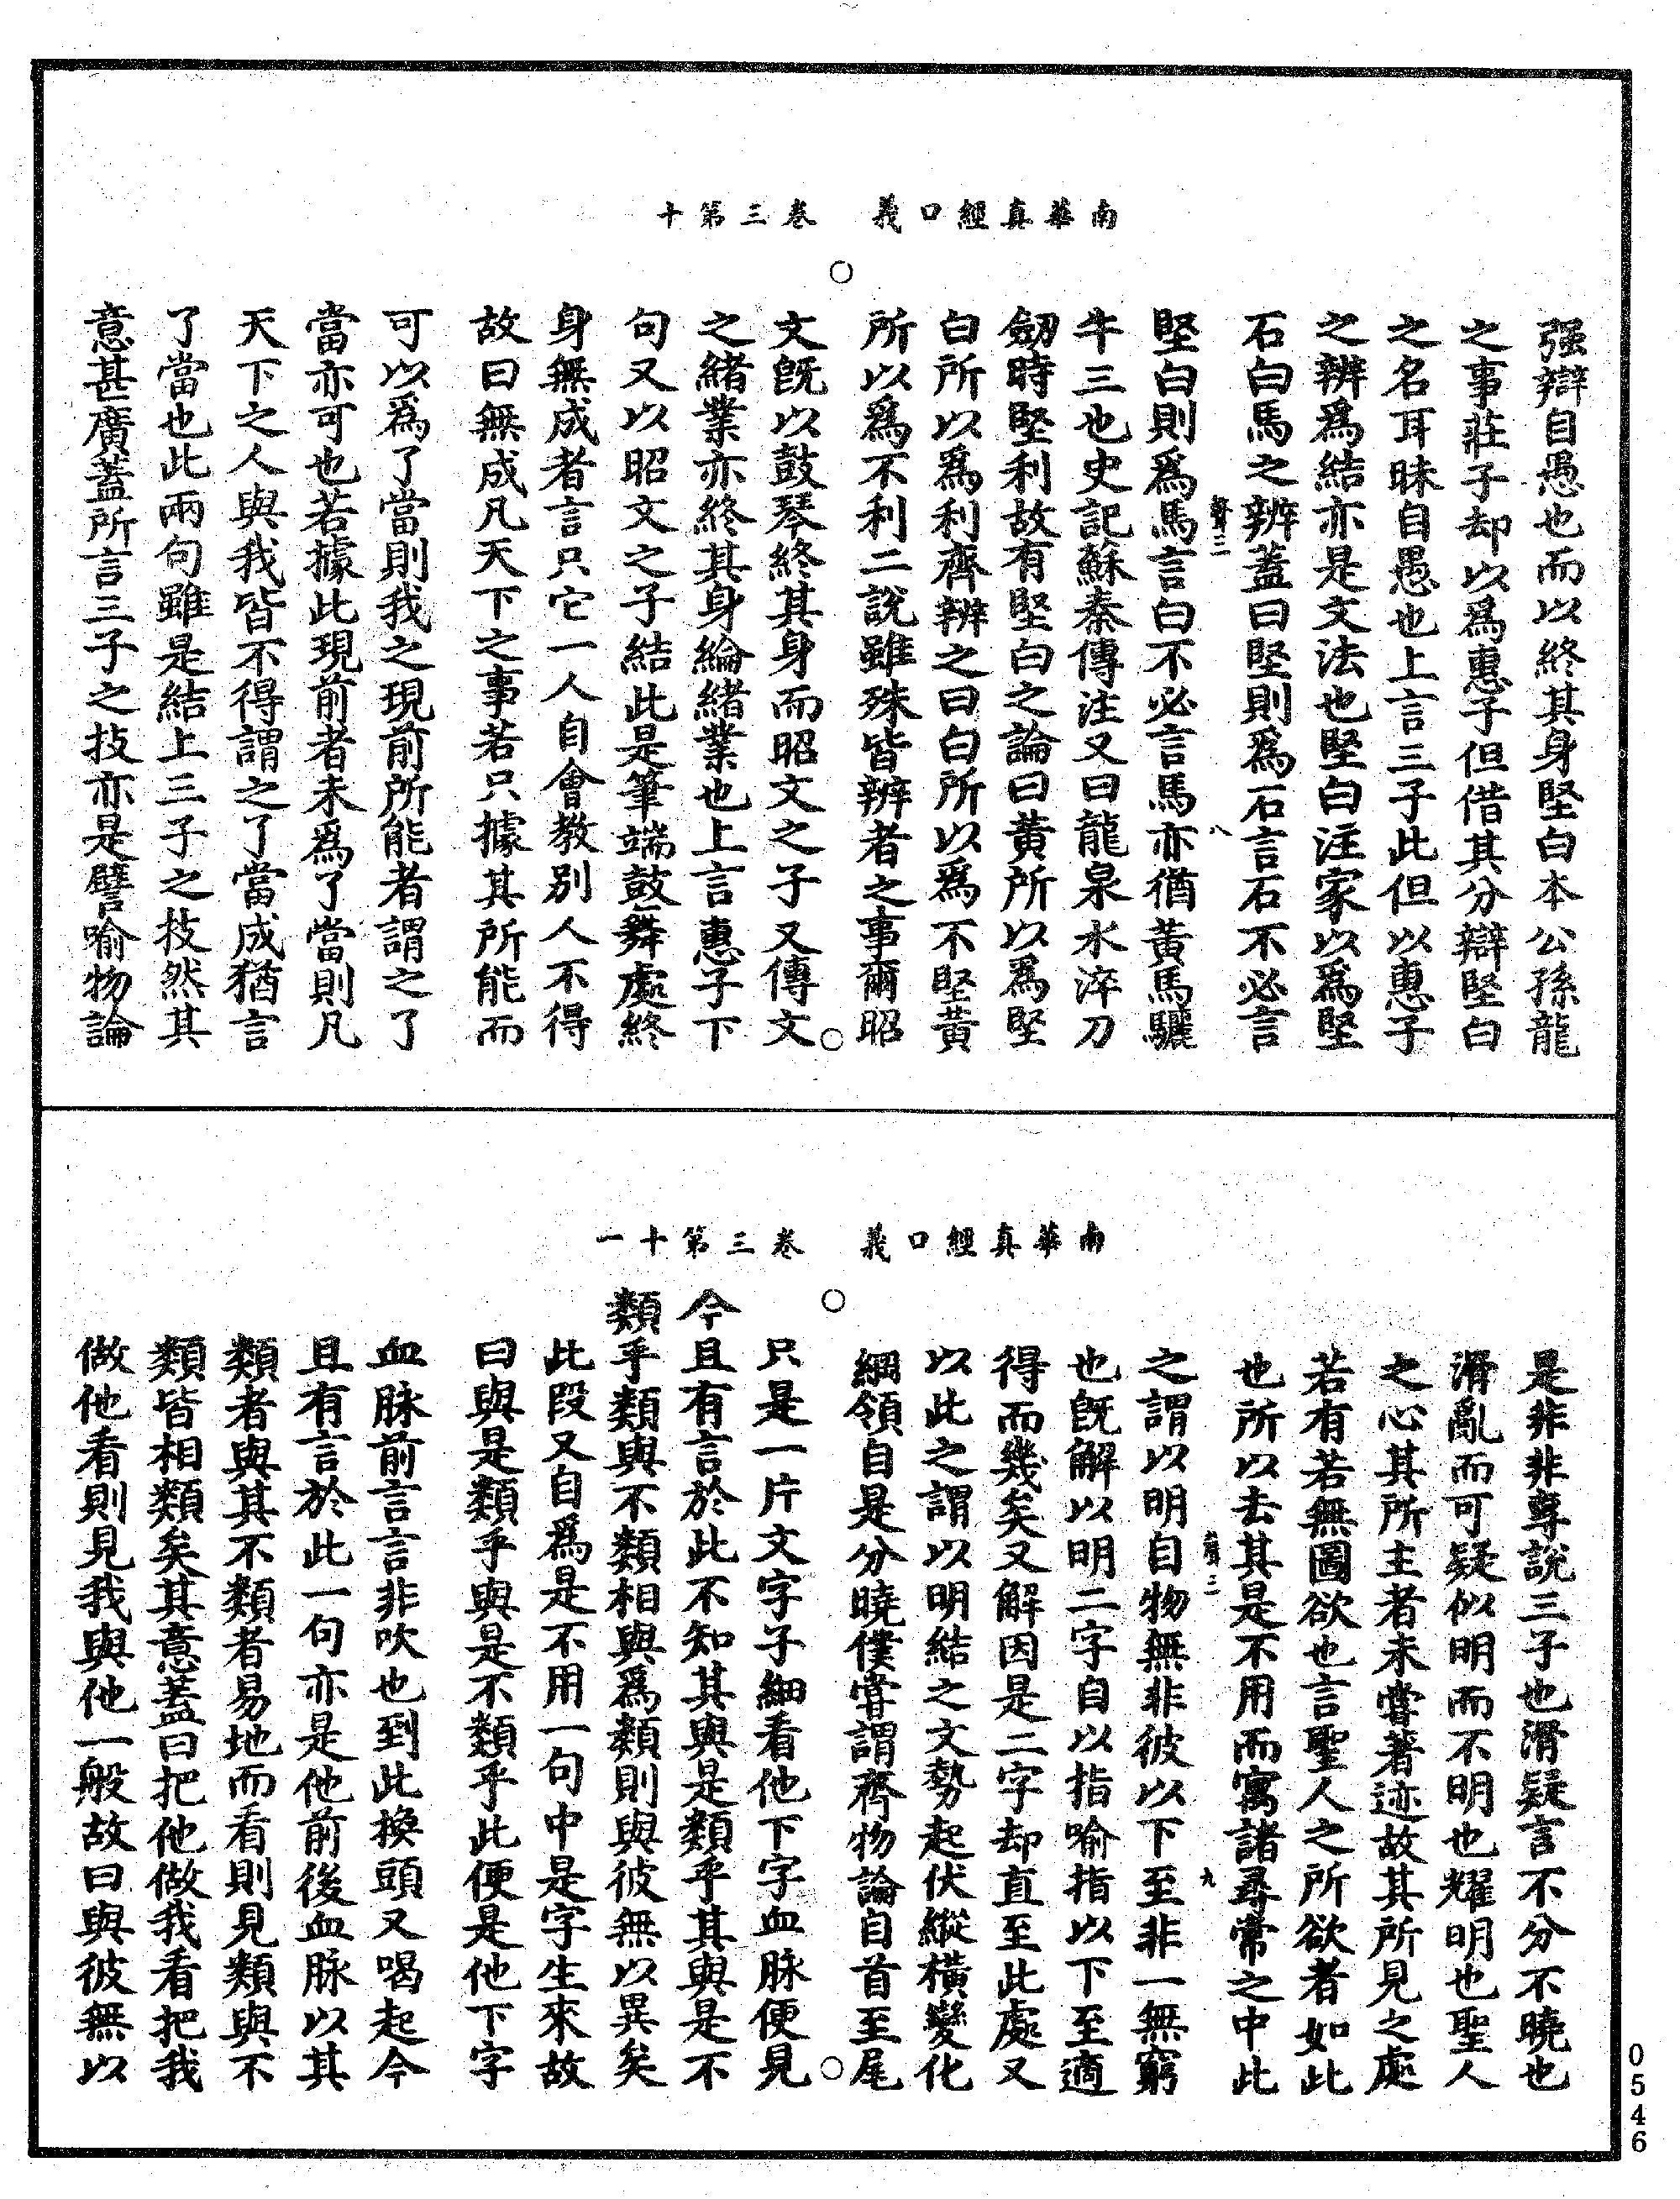 南華真經口義　卷三第十
强辯自愚也而以終其身堅白本公孫龍
之事莊子却以爲惠子但借其分辯堅白
之名耳昧自愚也上言三子此但以惠子
之辨爲結亦是文法也堅白注家以爲堅
石白馬之辨蓋曰堅則爲石言石不必言
三　八
堅白則爲馬言白不必言馬亦猶黃馬驪
牛三也史記蘇秦傳注又曰龍泉水淬刀
劒時堅利故有堅白之論曰黃所以爲堅
白所以爲利齊辨之曰白所以爲不堅黃
所以爲不利二說雖殊皆辨者之事爾昭
文旣以鼓琴終其身而昭文之子又傳文
之緒業亦終其身綸緒業也上言惠子下
句又以昭文之子結此是筆端鼓舞處終
身無成者言只它一人自會教別人不得
故曰無成凡天下之事若只據其所能而
可以爲了當則我之現前所能者謂之了
當亦可也若據此現前者未爲了當則凡
天下之人與我皆不得謂之了當成猶言
了當也此兩句雖是結上三子之技然其
意甚廣蓋所言三子之技亦是譬喻物論
南華真經口義　卷三第十一
是非非尊說三子也滑疑言不分不曉也
滑亂而可疑似明而不明也耀明也聖人
之心其所主者未嘗著迹故其所見之處
若有若無圖欲也言聖人之所欲者如此
也所以去其是不用而寓諸尋常之中此
三　九
之謂以明自物無非彼以下至非一無窮
也旣解以明二字自以指喻指以下至適
得而幾矣又解因是二字却直至此處又
以此之謂以明結之文勢起伏縱橫變化
綱領自是分曉僕嘗謂齊物論自首至尾
只是一片文字子細看他下字血脉便見
今且有言於此不知其與是類乎其與是不
類乎類與不類相與爲類則與彼無以異矣
此段又自爲是不用一句中是字生來故
曰與是類乎與是不類乎此便是他下字
血脉前言言非吹也到此換頭又喝起今
且有言於此一句亦是他前後血脉以其
類者與其不類者易地而看則見類與不
類皆相類矣其意蓋曰把他做我看把我
做他看則見我與他一般故曰與彼無以
0546